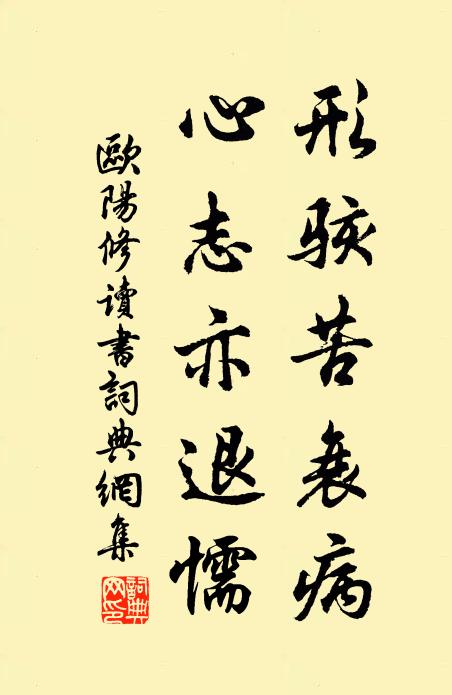 形骸苦衰病
心志亦退懦
歐陽修讀書詞典網集
詞典
网印